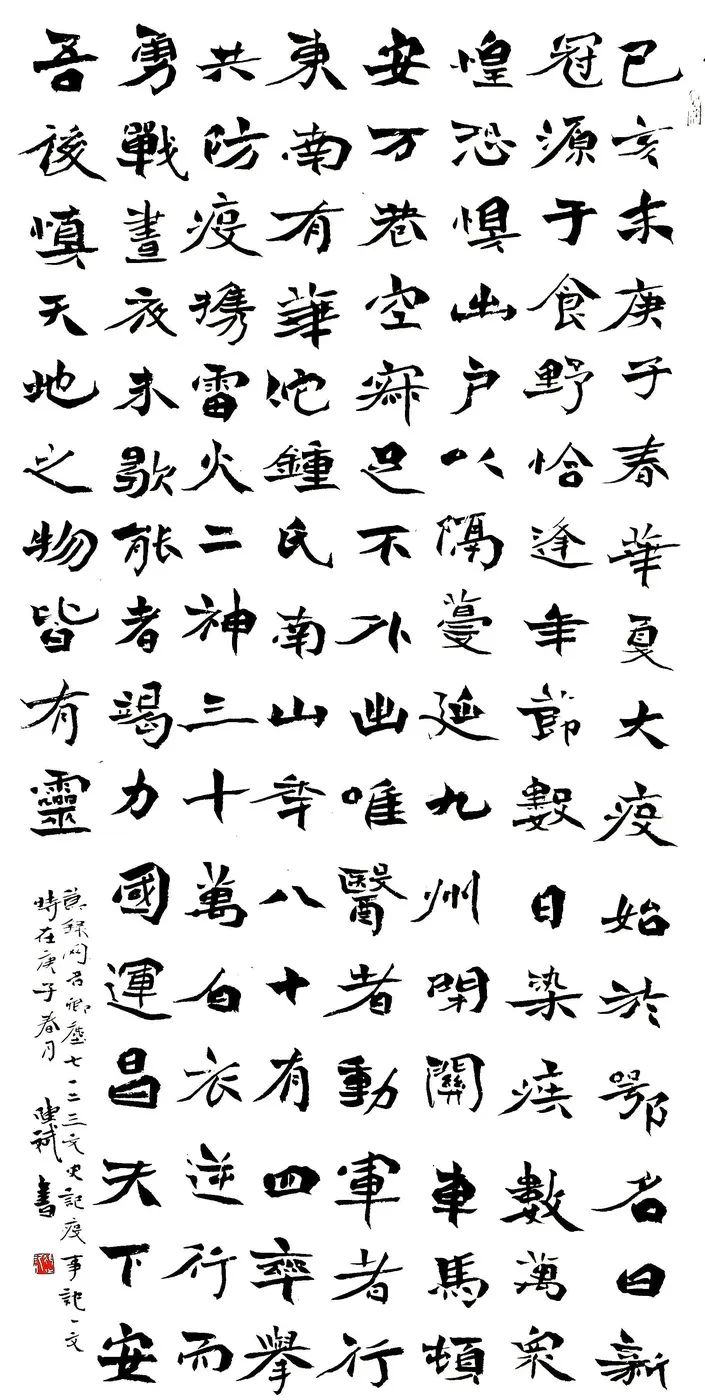 已亥末庚子春華夏大疫始於鄂名曰新
冠源于食野恰逢年節數日染疾數萬眾
惶恐惧出户以隔蔓延九州閉關車馬頓
安万巷空寂足不外出唯醫者動軍者行
東南有華佗鍾氏南山年八十有四率舉
共防疫携雷火二神三十萬白衣逆行而
勇戰晝夜未歇能者竭力國運昌天下安
吾後慎天地之物皆有靈
節録网名卿塵七一二三文史記疫事記一文
時在庚子春月 書